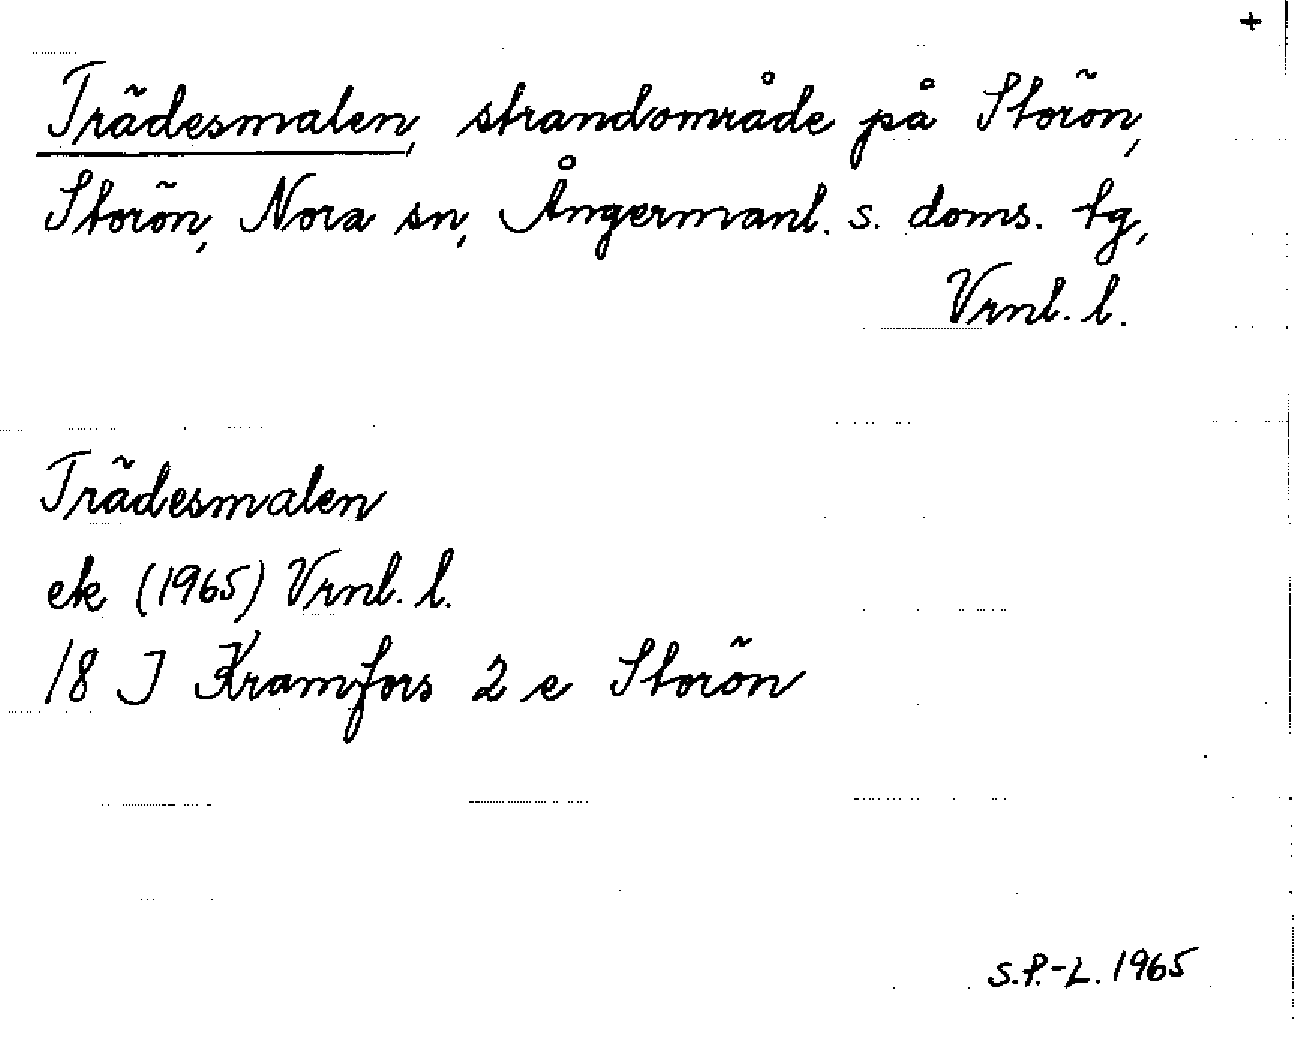 +
Trädesmalen, strandområde på Storön,
Storön, Nora sn, Ångermanl. s. doms. tg,
Vrnl. l.
Trädesmalen
ek (1965) Vrnl. l.
18 J Kramfors 2 e Storön
S.P.-L. 1965